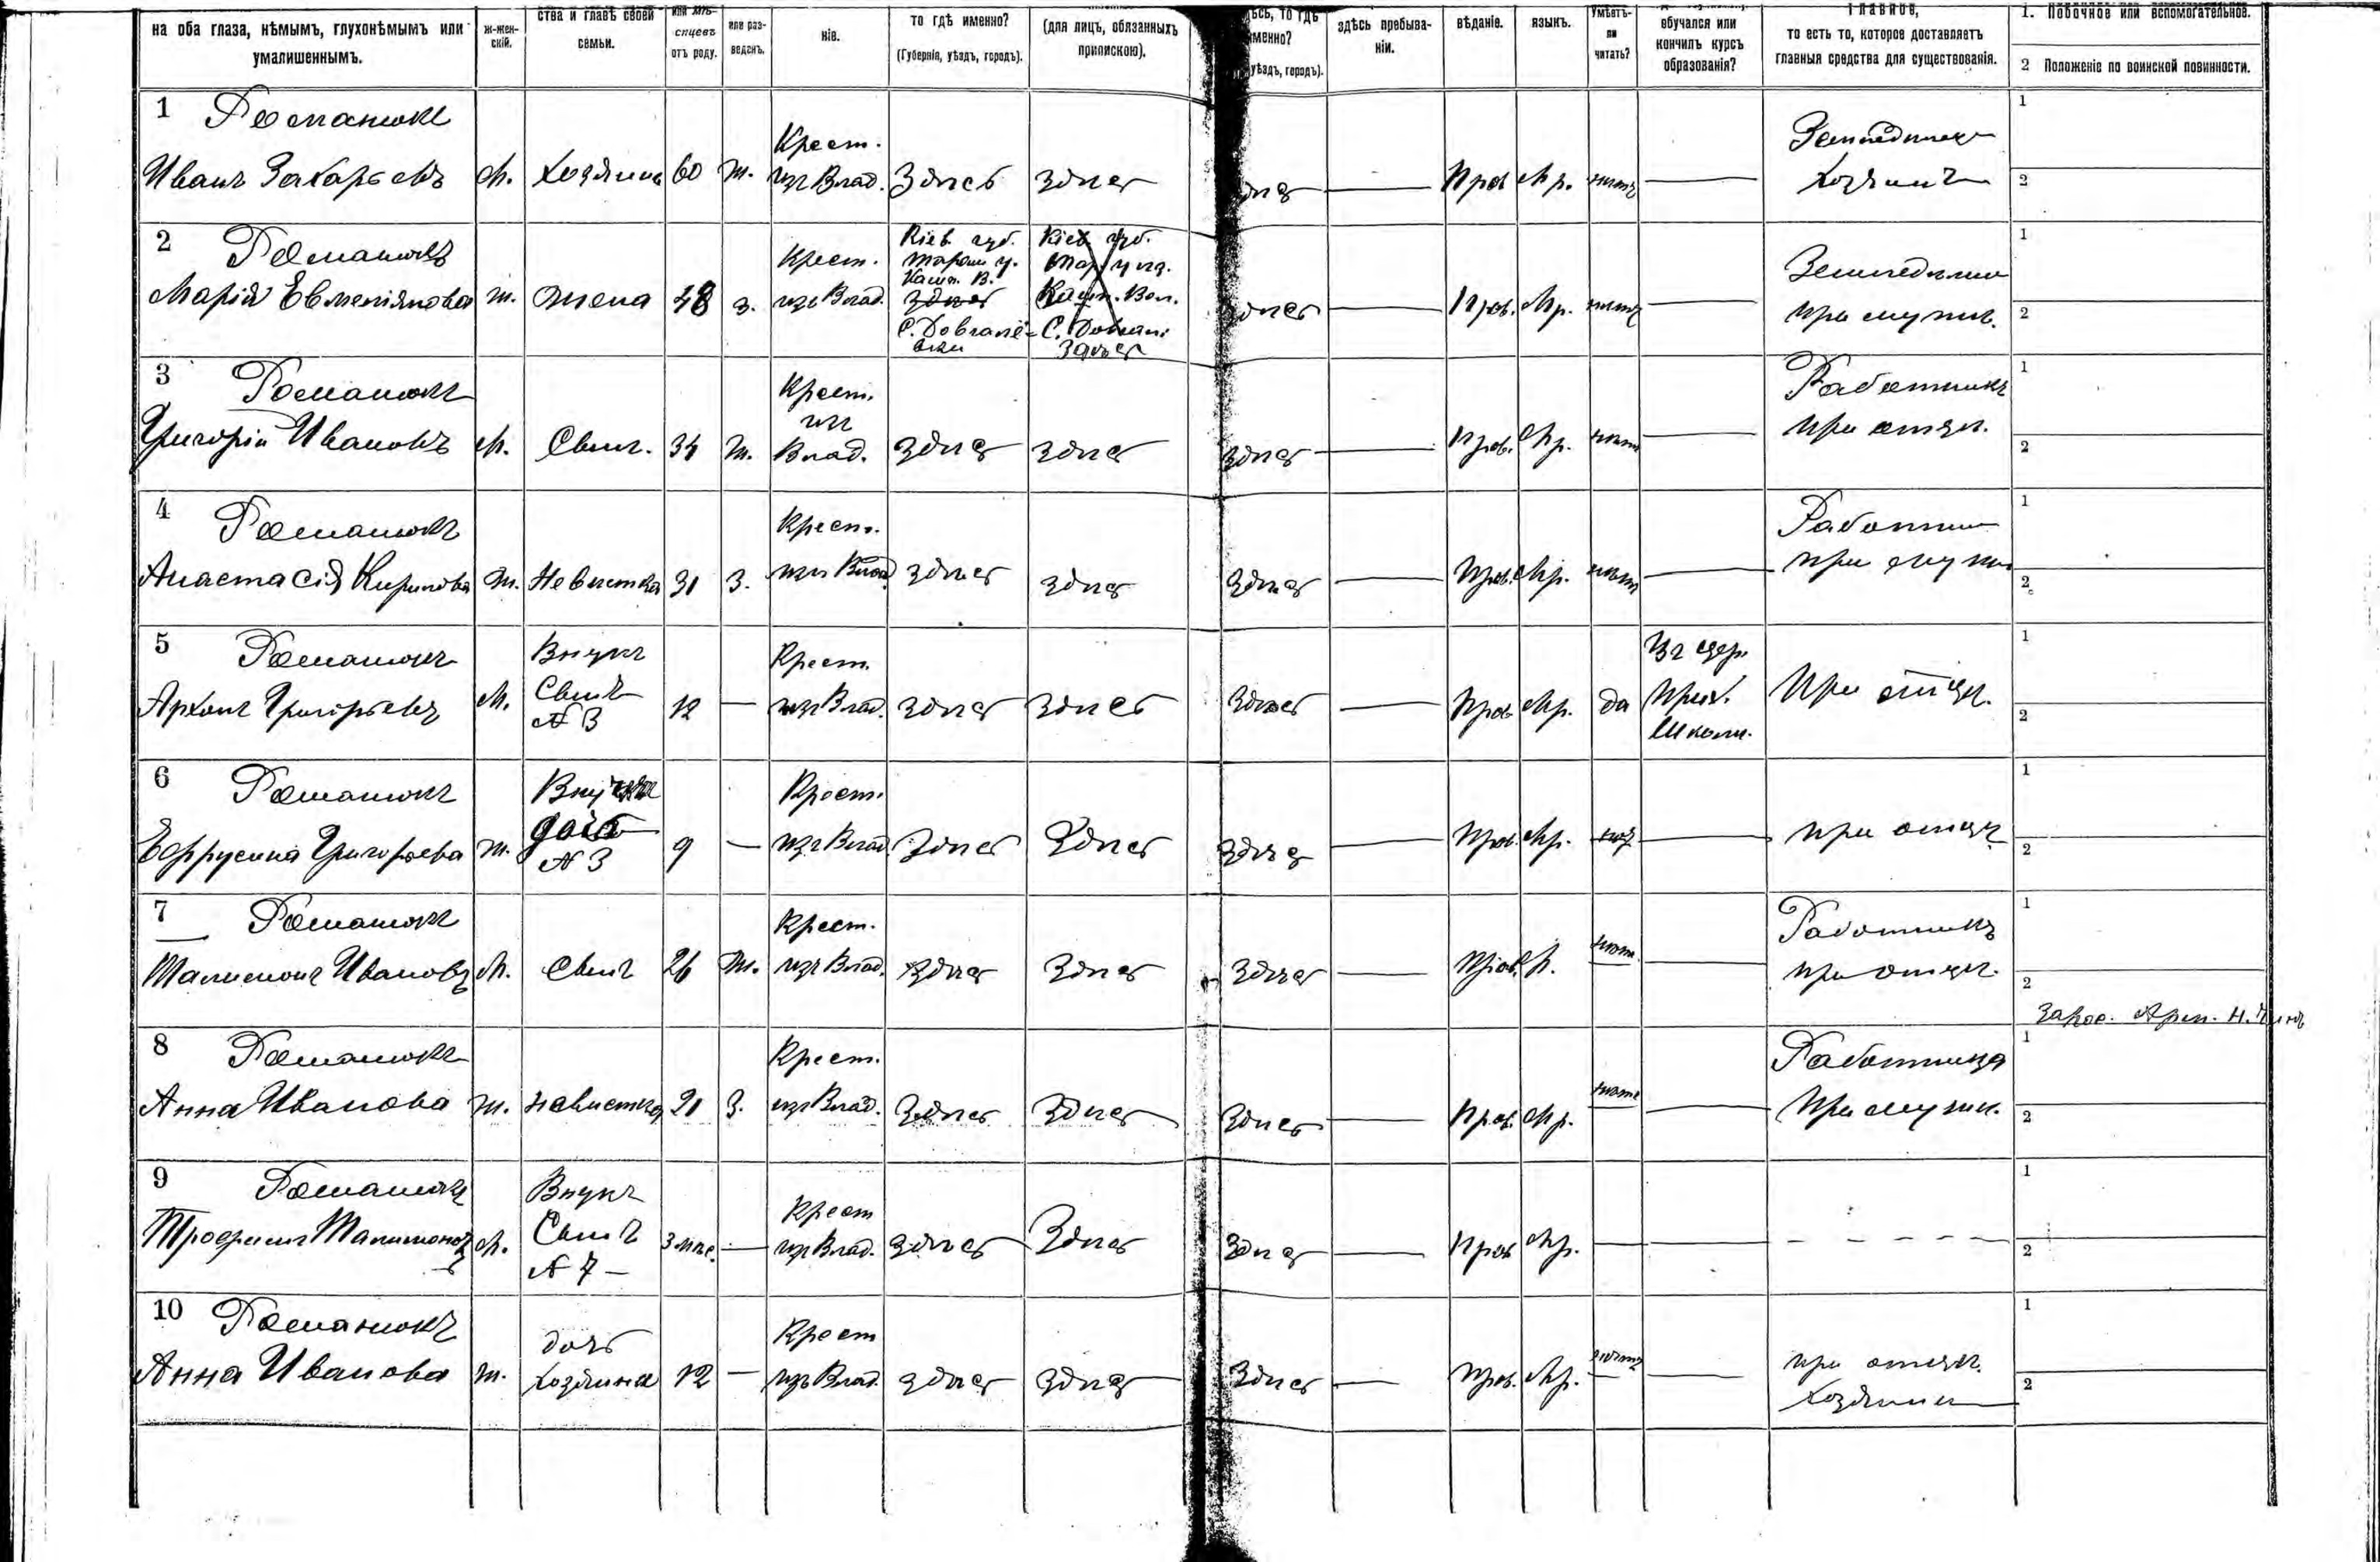 на оба глаза, нѣмымъ, глухонѣмымъ или умалишеннымъ.
ж-женскій.
ства и главѣ своей семьи.
или мѣсяцевъ отъ роду.
или разведенъ.
ніе.
то гдѣ именно?
(Губернія, уѣздъ, городъ).
(для лицъ, обязанныхъ припискою).
здѣсь пребываніи.
вѣданіе.
языкъ.
Умѣетъ-ли читать?
обучался или кончилъ курсъ образованія?
Главное,
то есть то, которое доставляетъ главныя средства для существованія.
1. Побочное или вспомогательное.
2 Положеніе по воинской повинности.
1 Романюкъ
Иванъ Захарьевъ М. Хозяинъ 60 Ж. Крест. изъ Влад. Здѣсь Здѣсь Здѣсь — Прав. Мр. нѣтъ — Земледѣлецъ Хозяинъ
1
2
2 Романюкъ
Марія Евменіянова Ж. Жена 48 З. Крест. изъ Влад.
Кіев. губ.
Таращ у.
Кашт. В.
Здѣсь
С. Dobranë-
вки
Кіев. губ.
Здѣсь
Здѣсь — Прав. Мр. нѣтъ — Земледѣлие при мужѣ.
1
2
3 Романюкъ
Григорій Ивановъ М. Сынъ. 34 Ж. Крест. изъ Влад. Здѣсь Здѣсь Здѣсь — Прав. Мр. нѣтъ — Работникъ при отцѣ.
1
2
4 Романюкъ
Анастасія Кирилова Ж. Невѣстка 31 З. Крест. изъ Влад. Здѣсь Здѣсь Здѣсь — Прав. Мр. нѣтъ — Работни при мужѣ
1
2
5 Романюкъ
Архипъ Григорьевъ М. Внукъ Сынъ N 3 12 — Крест. изъ Влад. Здѣсь Здѣсь Здѣсь — Прав. Мр. да Въ цер. прих. школѣ. При отцѣ.
1
2
6 Романюкъ
Ефрусина Григорьева Ж. Внучка дочь N 3 9 — Крест. изъ Влад. Здѣсь Здѣсь Здѣсь — Прав. Мр. нѣт — при отцѣ
1
2
7 Романюкъ
Талимонъ Ивановъ М. Сынъ 26 Ж. Крест. изъ Влад. Здѣсь Здѣсь Здѣсь — Прав. Р. нѣт. — Работникъ при отцѣ.
1
2
8 Романюкъ
Анна Иванова Ж. невѣстка 21 З. Крест. изъ Влад. Здѣсь Здѣсь Здѣсь — Прав. Мр. нѣтъ — Работница при мужѣ.
1
2
9 Романюкъ
Трофимъ Талимоновъ М. Внукъ Сынъ N 7 — 3 мѣс. — Крест изъ Влад. Здѣсь Здѣсь Здѣсь — Прав Мр. — — - - - - -
1
2
10 Романюкъ
Анна Иванова Ж. дочь хозяина 12 — Крест изъ Влад. Здѣсь Здѣсь Здѣсь — Прав. Мр. нѣтъ — при отцѣ. Хозяинѣ
1
2